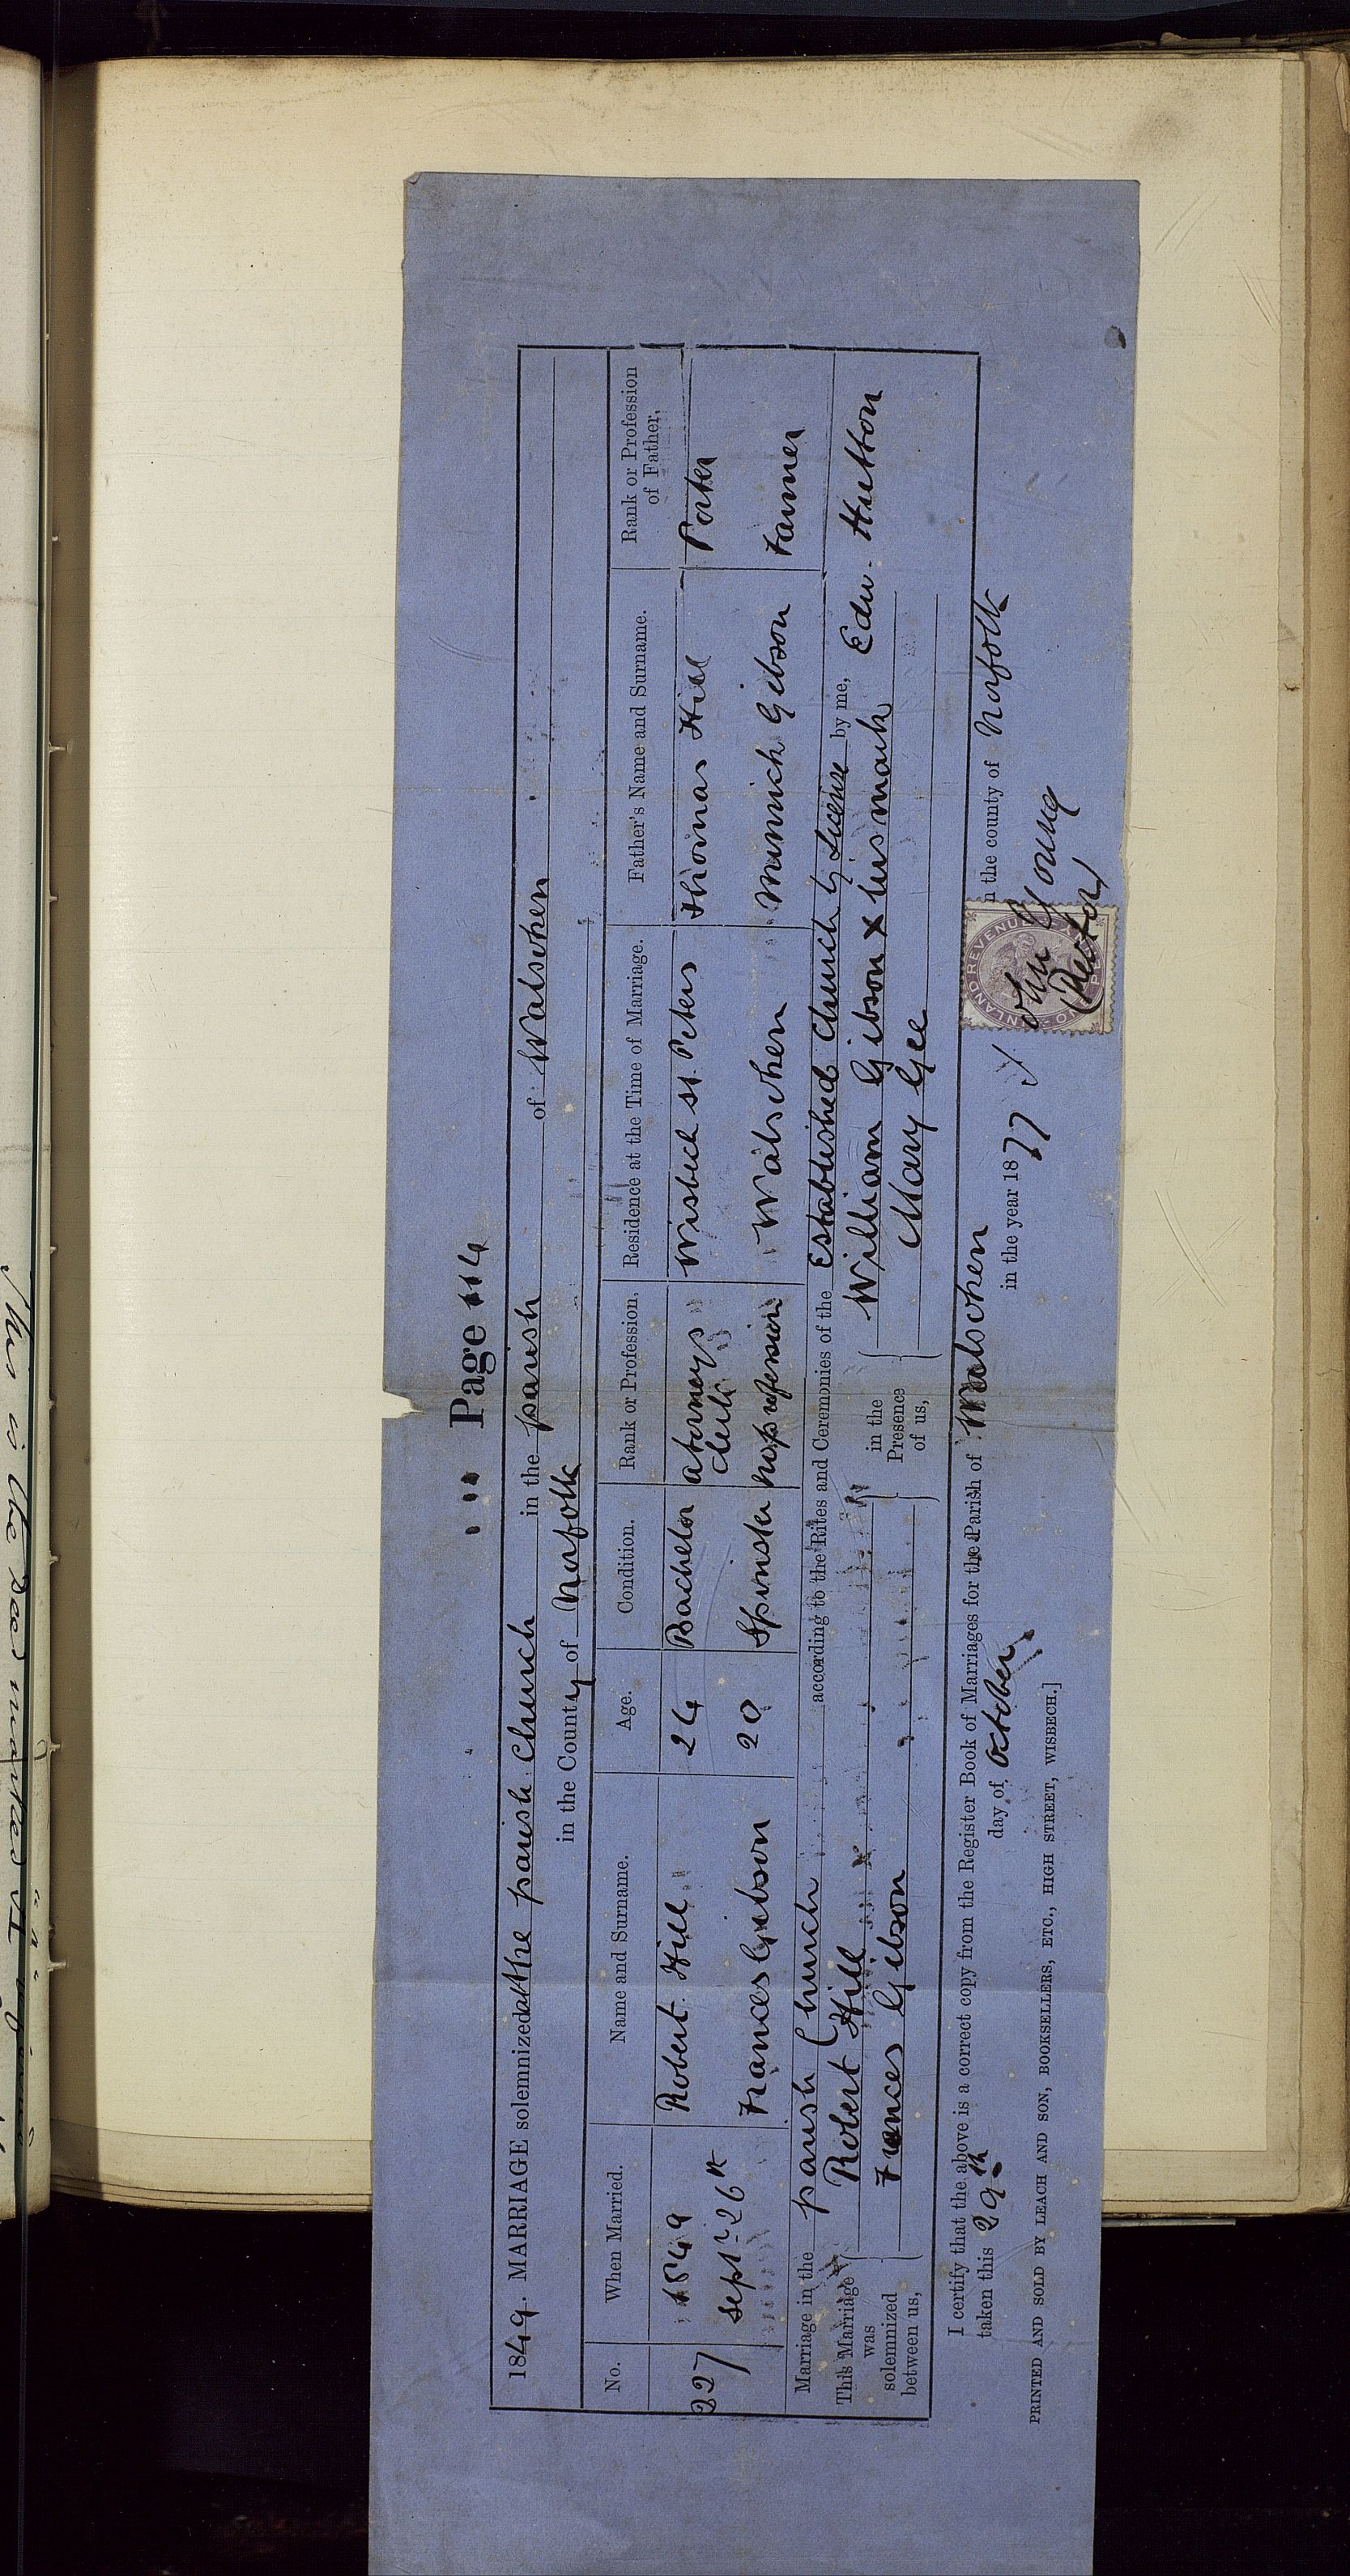 Page 114
1849. MARRIAGE solemnized at the parish Church in the parish of Walsoken
in the County of Norfolk
No. When Married. Name and Surname. Age. Condition. Rank or Profession. Residence at the Time of Marriage. Father's Name and Surname. Rank or Profession of Father.
227 1849 Septr 26th Robert Hill 24 Bachelor atorneys Clerk Wisbech St. Peters Thomas Hill Porter
Frances Gibson 20 Spinster no profession Walsoken Minnick Gibson Farmer
Marriage in the parish Church according to the Rites and Ceremonies of the Established Church by License by me, Edw. Hutton
This Marriage was solemnized between us, Robert Hill Frances Gibson in the Presence of us, William Gibson X his mark Mary Gee
I certify that the above is a correct copy from the Register Book of Marriages for the Parish of Walsoken in the county of Norfolk
taken this 29th day of October in the year 1877 John Young
(Rector)
INLAND REVENUE
PRINTED AND SOLD BY LEACH AND SON, BOOKSELLERS, ETC., HIGH STREET, WISBECH.]
This is the